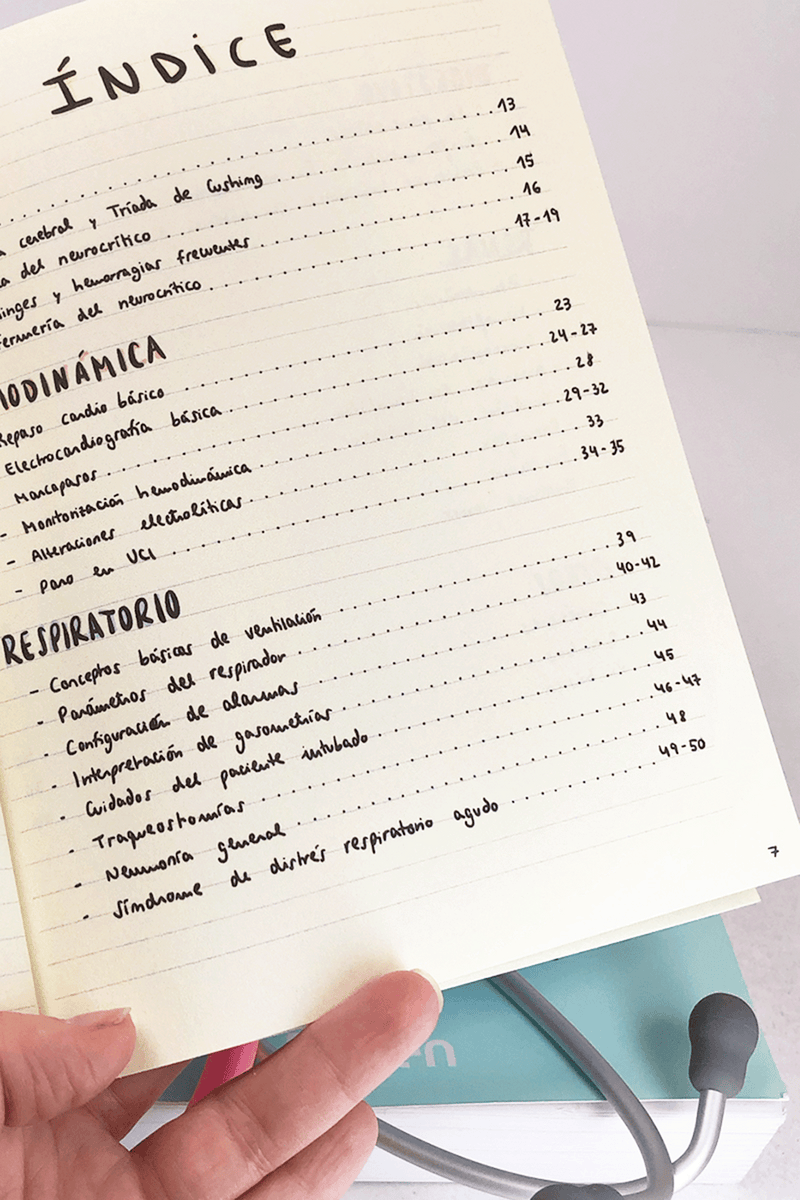 ÍNDICE
. . . . . . . . . . . . . . . . . . . . . . . . . . . . . . . 13
cerebral y Tríada de Cushing . . . . . . . . . . . . . . . . . 14
del neurocrítico . . . . . . . . . . . . . . . . . . . . . . . 15
inges y hemorragias frecuentes . . . . . . . . . . . . . . . . 16
fermería del neurocrítico . . . . . . . . . . . . . . . . . . . 17-19
ODINÁMICA
Repaso cardio básico . . . . . . . . . . . . . . . . . . . . . 23
Electrocardiografía básica . . . . . . . . . . . . . . . . . . 24-27
Marcapasos . . . . . . . . . . . . . . . . . . . . . . . . . . 28
- Monitorización hemodinámica . . . . . . . . . . . . . . . . . 29-32
- Alteraciones electrolíticas . . . . . . . . . . . . . . . . . 33
- Paro en UCI . . . . . . . . . . . . . . . . . . . . . . . . . 34-35
RESPIRATORIO
- Conceptos básicos de ventilación . . . . . . . . . . . . . . . 39
- Parámetros del respirador . . . . . . . . . . . . . . . . . . 40-42
- Configuración de alarmas . . . . . . . . . . . . . . . . . . . 43
- Interpretación de gasometrías . . . . . . . . . . . . . . . . 44
- Cuidados del paciente intubado . . . . . . . . . . . . . . . . 45
- Traqueostomías . . . . . . . . . . . . . . . . . . . . . . . . 46-47
- Neumonía general . . . . . . . . . . . . . . . . . . . . . . . 48
- Síndrome de distrés respiratorio agudo . . . . . . . . . . . . 49-50
7